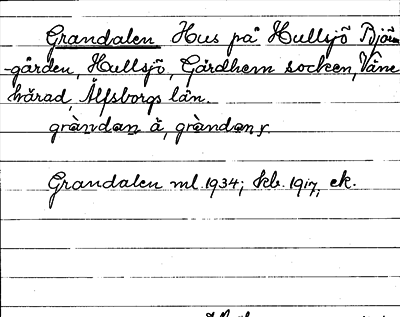 Grandalen Hus på Hullsjö
-gården, Hullsjö, Gärdhem socken, Väne
härad, Älfsborgs län.
gràndan å, gràndan
Grandalen ml. 1934; kb. 1917, ek.